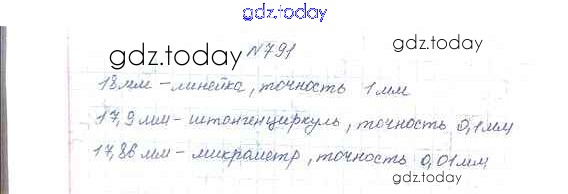 gdz.today
gdz.today №791 gdz.today
18мм - линейка, точность 1 мм
17,9 мм - штангенциркуль, точность 0,1 мм
17,86 мм - микрометр, точность 0,01 мм